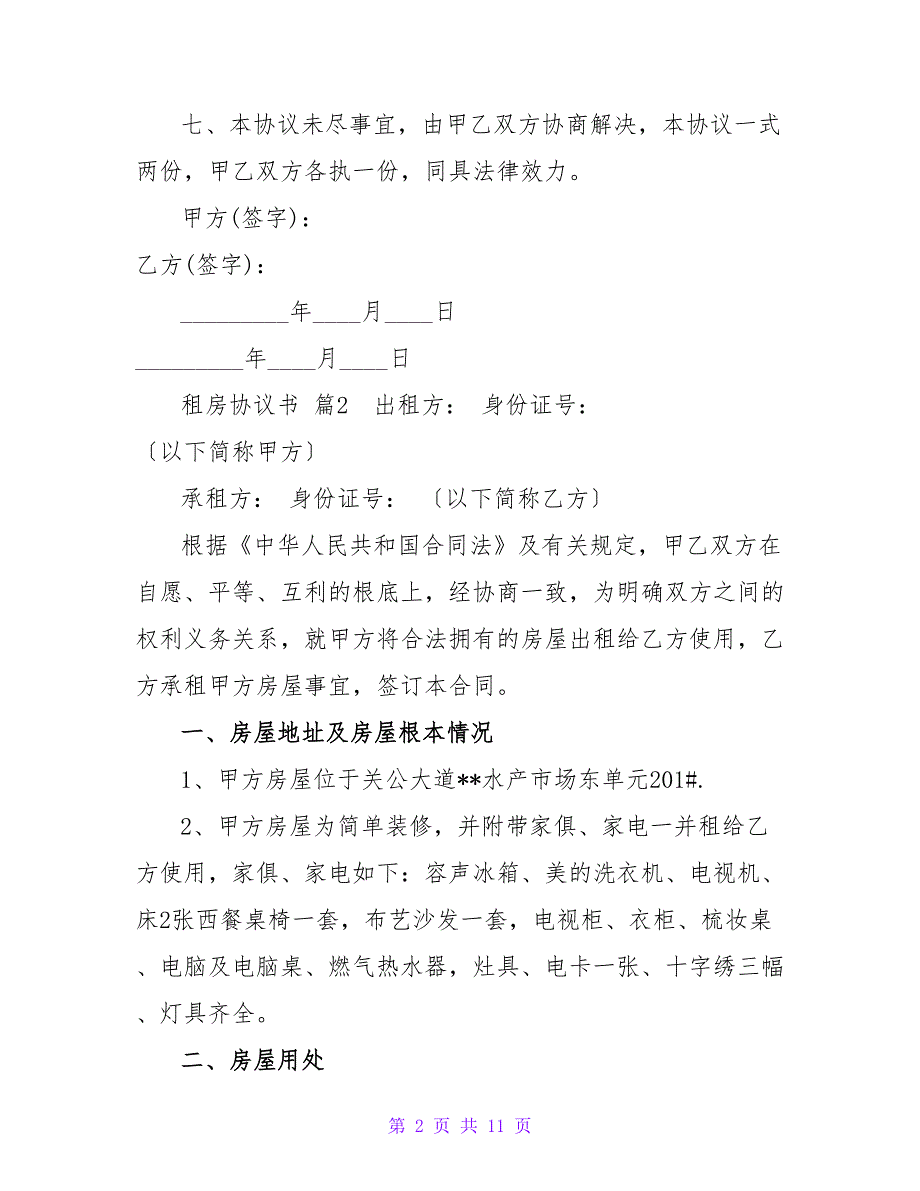 七、本协议未尽事宜，由甲乙双方协商解决，本协议一式
两份，甲乙双方各执一份，同具法律效力。
甲方(签字)：
乙方(签字)：
_________年____月____日
_________年____月____日
租房协议书 篇2　出租方： 身份证号：
〔以下简称甲方〕
承租方： 身份证号： 〔以下简称乙方〕
根据《中华人民共和国合同法》及有关规定，甲乙双方在
自愿、平等、互利的根底上，经协商一致，为明确双方之间的
权利义务关系，就甲方将合法拥有的房屋出租给乙方使用，乙
方承租甲方房屋事宜，签订本合同。
一、房屋地址及房屋根本情况
1、甲方房屋位于关公大道**水产市场东单元201#.
2、甲方房屋为简单装修，并附带家俱、家电一并租给乙
方使用，家俱、家电如下：容声冰箱、美的洗衣机、电视机、
床2张西餐桌椅一套，布艺沙发一套，电视柜、衣柜、梳妆桌
、电脑及电脑桌、燃气热水器，灶具、电卡一张、十字绣三幅
、灯具齐全。
二、房屋用处
第 2 页 共 11 页